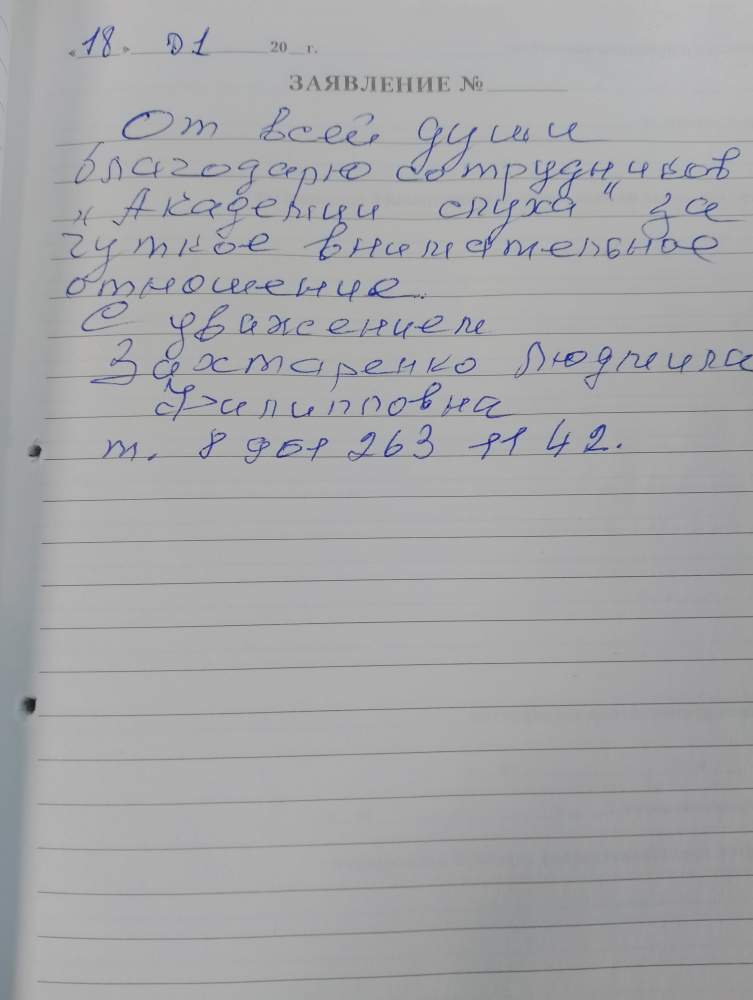 «18» 01 20 г.
ЗАЯВЛЕНИЕ №
От всей души
благодарю сотрудников
"Академии слуха" за
чуткое внимательное
отношение.
С уважением
Захтаренко Людмила
Филипповна
т. 8 961 263 11 42.